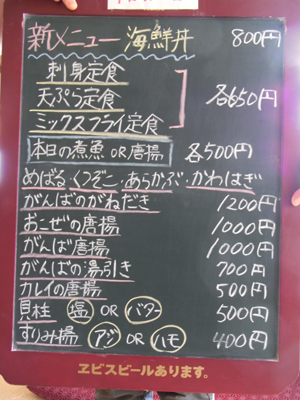 新メニュー 海鮮丼 800円
刺身定食
天ぷら定食 各650円
ミックスフライ定食
本日の煮魚 OR 唐揚 各500円
めばる・くつぞこ・あらかぶ・かわはぎ
がんばのがねだき 1200円
おこぜの唐揚 1000円
がんば唐揚 1000円
がんばの湯引き 700円
カレイの唐揚 500円
貝柱 塩 OR バター 500円
すりみ揚 アジ OR ハモ 400円
ヱビスビールあります。